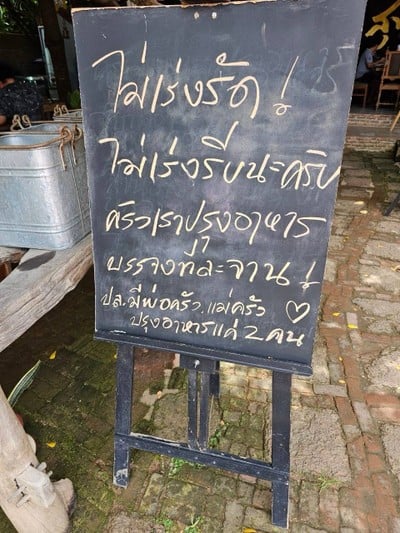 ไม่เร่งรัด!
ไม่เร่งรีบนะครับ
ครัวเราปรุงอาหาร
บรรจงทำทีละจาน!
ปล.มีพ่อครัว.แม่ครัว
ปรุงอาหารแค่ 2 คน ♡